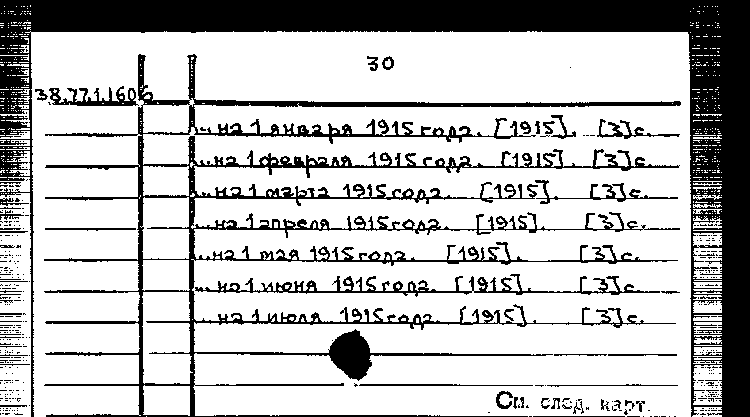 30
38.77.1.1606
...на 1 января 1915 года. [1915]. [3]с.
...на 1 февраля 1915 года. [1915]. [3]с.
...на 1 марта 1915 года. [1915]. [3]с.
...на 1 апреля 1915 года. [1915]. [3]с.
...на 1 мая 1915 года. [1915]. [3]с.
...на 1 июня 1915 года. [1915]. [3]с.
...на 1 июля 1915 года. [1915]. [3]с.
См. след. карт.